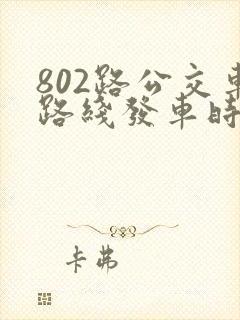 802路公交車
路綫發車時
卡弗